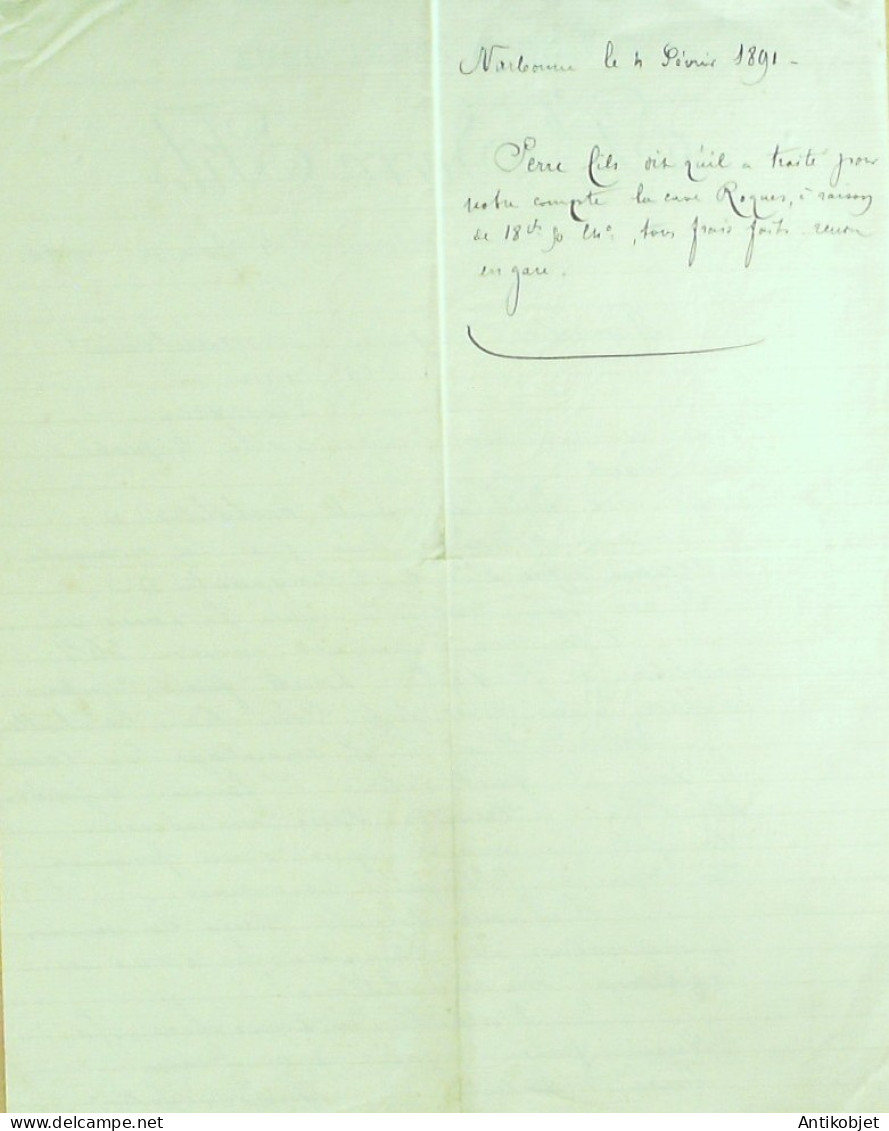 Narbonne le 4 Février 1891 -
Serre fils dit qu'il a traité pour
notre compte la cave Roques, à raison
de 18 , tous frais faits rendu
en gare.
Antikobjet